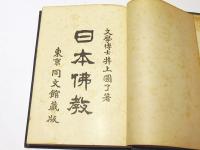 文學博士井上圓了著
日本佛教
東京同文館蔵版